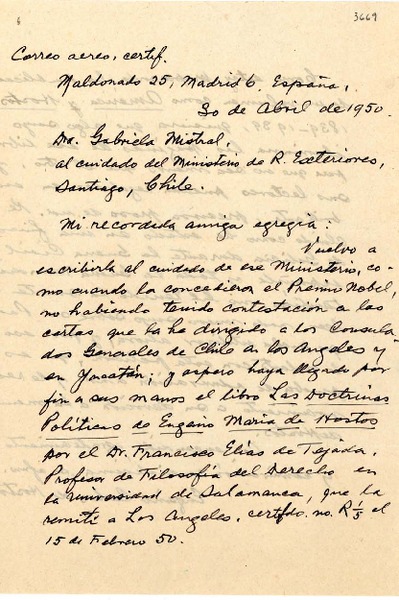 6 3669
Correo aereo, certif.
Maldonado 25, Madrid 6, España,
30 de Abril de 1950.
Da. Gabriela Mistral,
al cuidado del Ministerio de R. Exteriores,
Santiago, Chile.
Mi recordada amiga egregia:
Vuelvo a
escribirla al cuidado de ese Ministerio, co-
mo cuando la concedieron el Premio Nobel,
no habiendo tenido contestación a las
cartas que la he dirigido a los Consula-
dos Generales de Chile en los Angeles y
en Yucatán; y espero haya llegado por
fin a sus manos el libro Las Doctrinas
Políticas de Eugenio María de Hostos
por el Dr. Francisco Elías de Tejada,
Profesor de Filosofía del Derecho en
la Universidad de Salamanca, que la
remití a Los Angeles, certfdo. no. R 1/5 el
15 de Febrero 50.